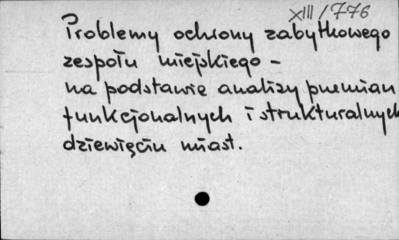 XIII/776
Problemy ochrony zabytkowego
zespołu miejskiego -
na podstawie analizy przemian
funkcjonalnych i strukturalnych
dziewięciu miast.